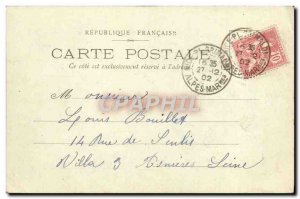 RÉPUBLIQUE FRANÇAISE
CARTE POSTALE
Ce côté est exclusivement réservé à l'adresse
27 -12
02
ALPES-MARMES
10
Monsieur
Louis Bouillet
14 Rue de Senlis
Villa 3 Asnières Seine
CPAPHIL.COM